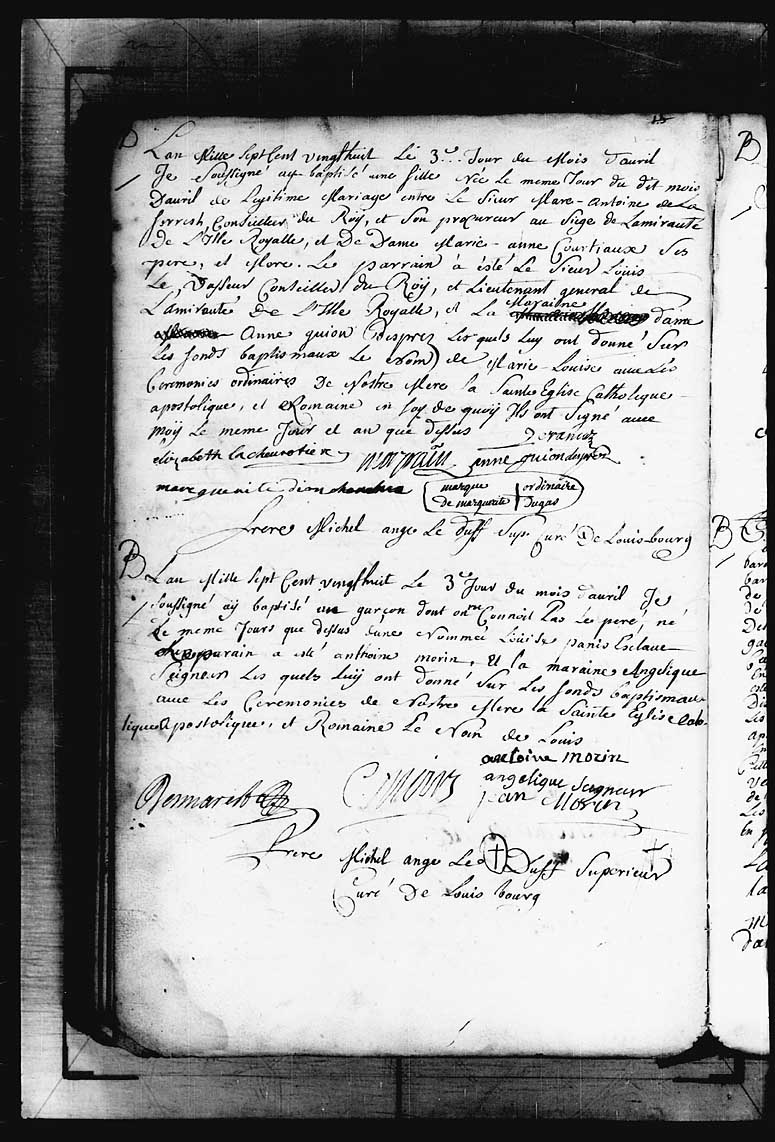 15
B
Lan Mille Sept Cent vingthuit Le 3.e Jour du Mois d'auril
Je Soussigné ay baptisé une fille née Le meme Jour du dit mois
Dauril de Legitime Mariage entre Le Sieur Marc-Antoine de La
forrest, Conseiller du Roÿ, et Son procureur au Siege de Lamirauté
De L'Isle Royalle, et De Dame Marie-anne Courtiaux Ses
pere, et Mere. Le parrain à été Le Sieur Loüis
Le Vasseur Conseiller du Roÿ, et Lieutenant general de
Maraine
Lamirauté De L'Isle Royalle, et La dame
Anne guion Desprez Les quels Luy ont donné Sur
Les fonds baptismaux Le Nom de Marie Louise auec Les
Ceremonies ordinaires De Nostre Mere la Sainte Eglise Catholique
apostolique, et Romaine en foy de quoÿ Ils ont Signé auec
moÿ Le meme Jour et an que dessus
elizabeth lacheurotiere anne guionduprez
marguerite dion
marque ordinaire
de marguerite Dugas
frere Michel ange Le duff Sup. Curé De Louis-bourg
B
Lan Mille Sept Cent vingthuit Le 3.e Jour du mois d'auril Je
Soussigné aÿ baptisé un garçon dont on ne Connoit Pas Le peré, né
Le meme Jours que dessus dune Nommeé Loüise panis Esclaue
parain a esté anthoine morin, Et la maraine Angelique
Seigneur Les quels Luÿ ont donné Sur Les fonds baptismau
auec Les Ceremonies de Nostre Mere la Sainte Eglise Cato-
lique Apostolique, et Romaine Le Nom de Louis
antoine morin
angelique Seigneur
Jean Morin
Desmarest
frere Michel ange Le Duff Superieur
Curé De Louis bourg
B
B